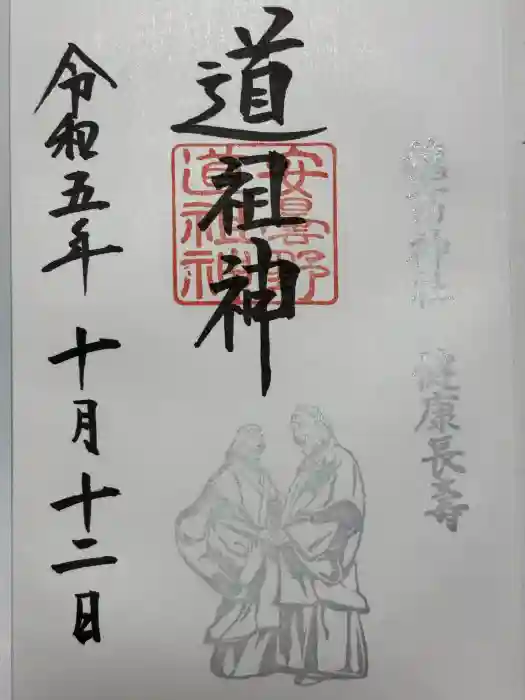 神社 健康長寿
道祖神
安曇野
道祖神
令和五年 十月十二日